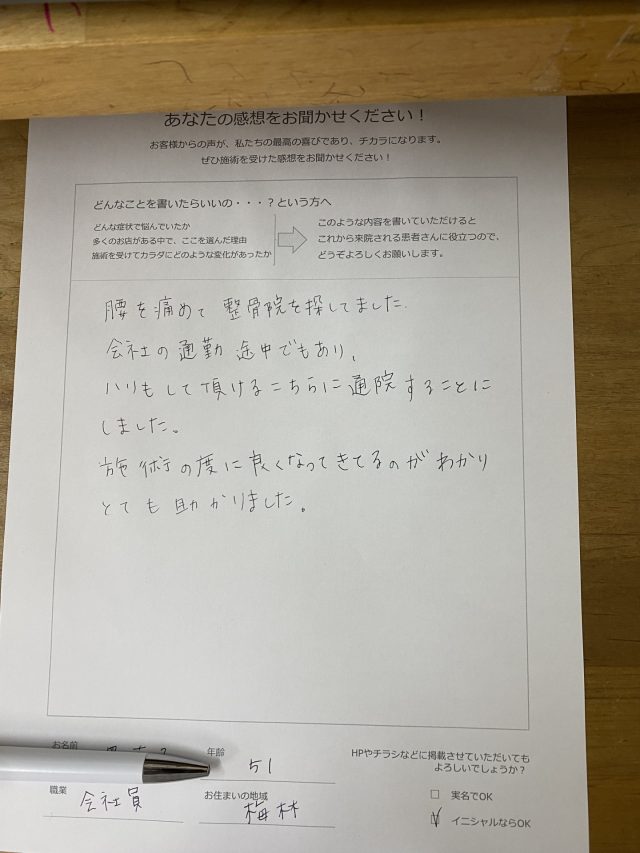 あなたの感想をお聞かせください！
お客様からの声が、私たちの最高の喜びであり、チカラになります。
ぜひ施術を受けた感想をお聞かせください！
どんなことを書いたらいいの・・・？という方へ
どんな症状で悩んでいたか
多くのお店がある中で、ここを選んだ理由
施術を受けてカラダにどのような変化があったか
このような内容を書いていただけると
これから来院される患者さんに役立つので、
どうぞよろしくお願いします。
腰を痛めて 整骨院を探してました.
会社の通勤途中でもあり、
ハリもして頂けるこちらに通院することに
しました。
施術の度に良くなってきてるのがわかり
とても助かりました。
お名前
年齢
51
職業
会社員
お住まいの地域
梅林
HPやチラシなどに掲載させていただいても
よろしいでしょうか？
□ 実名でOK
☑ イニシャルならOK